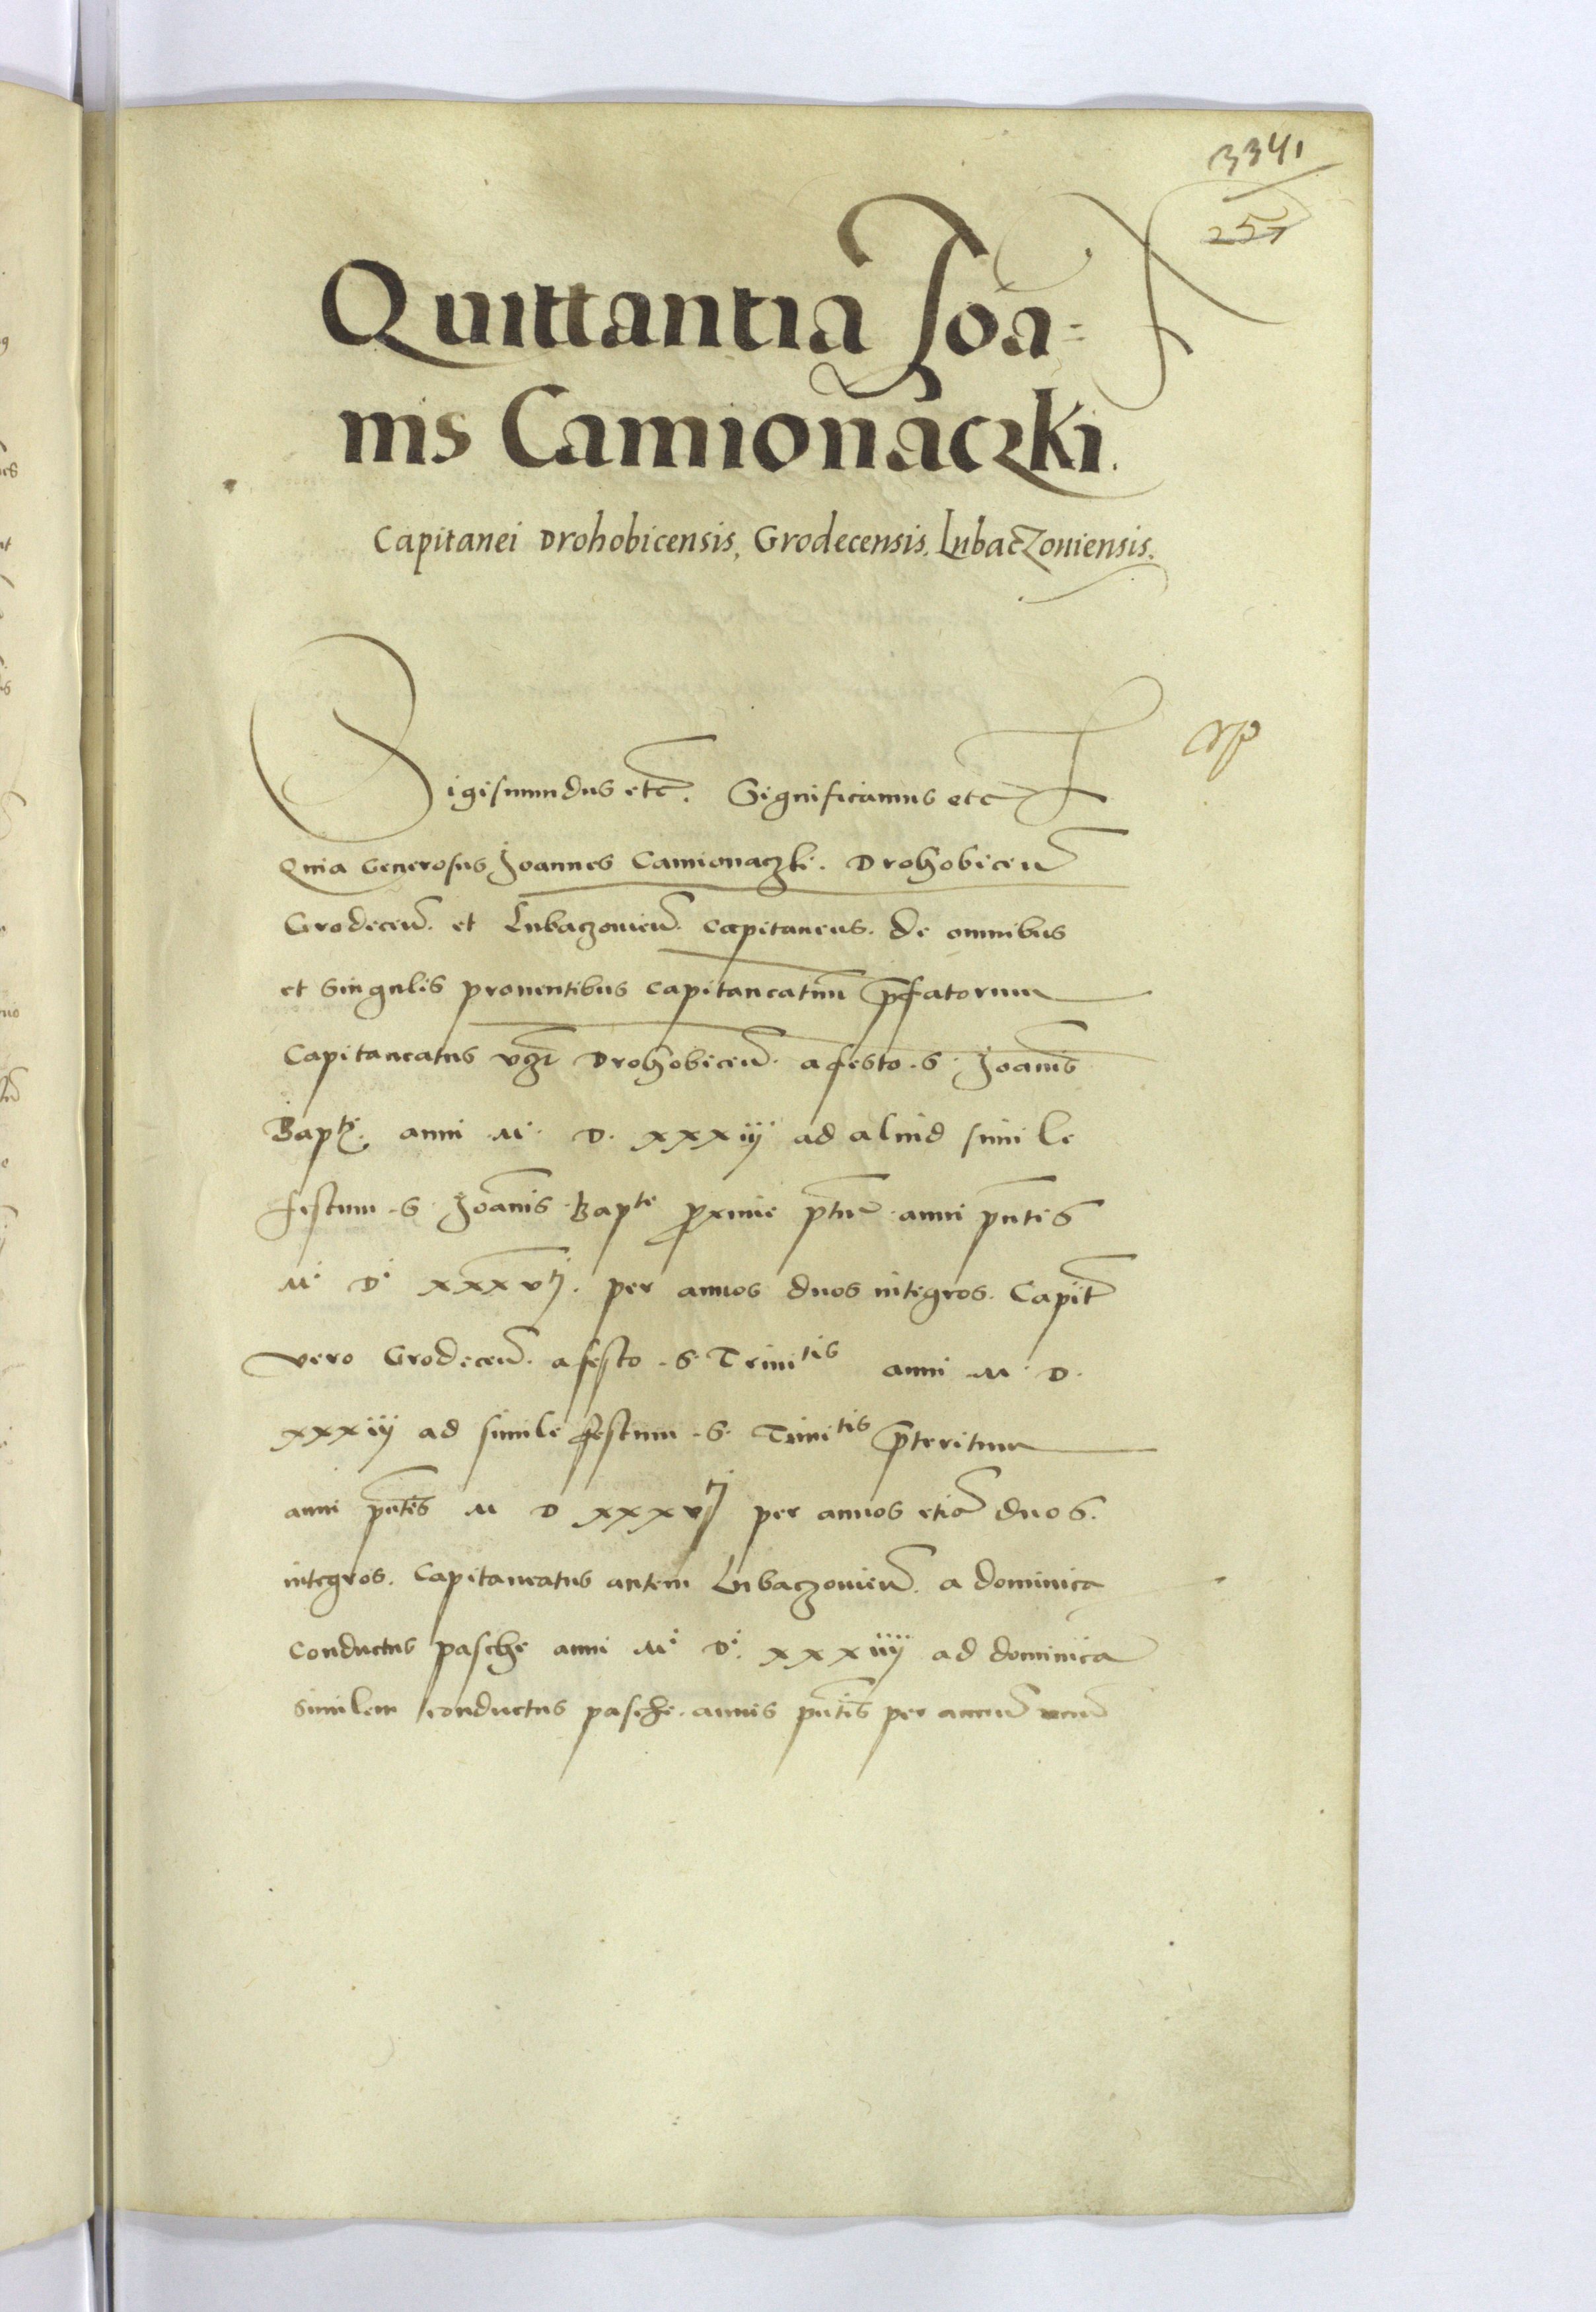 3341
257
Quittantia Joā=
nis Camionaczki.
Capitanei Drohobicensis, Grodecensis, Lubaczouiensis.
Sigismundus etc. Significamus etc
Quia Generosus Joannes Camionaczki. Drohobiceñ
Grodeceñ. et Lubaczouieñ. capitaneus. de omnibus
et singulis prouentibus capitaneatuum p̄fatorum
Capitaneatus vz Drohobiceñ. a festo .S. Joānis
Bapt. anni M. D. xxxiij ad aliud simile
festum .S. Joānis Bapte proxime ptur̄. anni p̄ntis
M. D. xxxv. per annos duos integros. Capit̄
vero Grodeceñ. a festo .S. Trinitis anni M. D.
xxxiij ad simile festum .S. Trinitis p̄teritum
anni p̄ntis M D xxxv per annos etiā duos.
integros. Capitaneatus autem Lubaczouieñ. a dominica
conductus pasche anni M. D. xxxiiij ad dominicā
similem conductus pasche. annis p̄ntis per annū unū